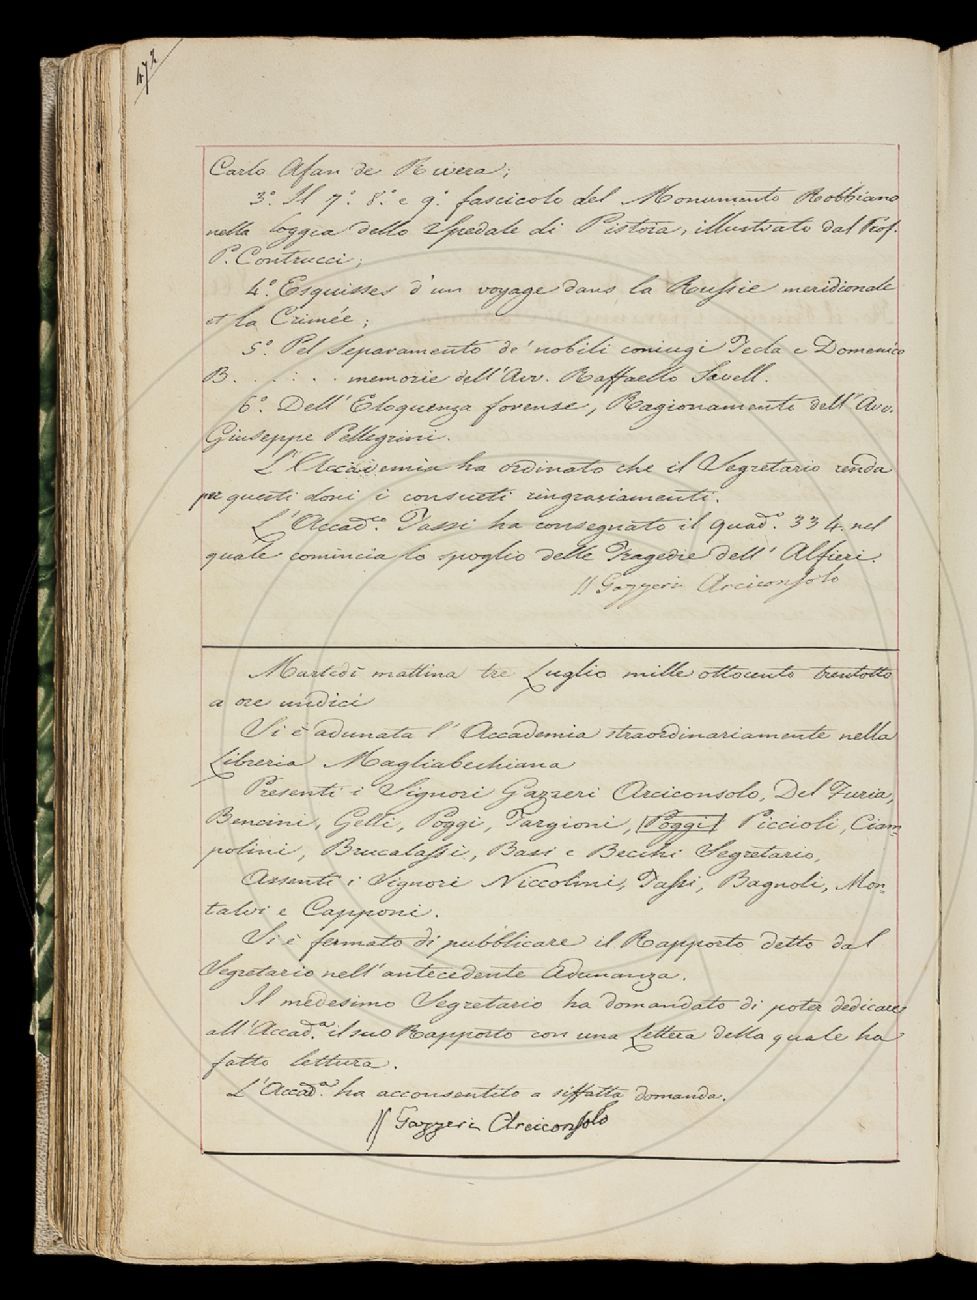 472
Carlo Afan de Rivera;
3.° Il 7.° 8.° e 9.° fascicolo del Monumento Robbiano
nella loggia dello Spedale di Pistoia, illustrato dal Prof.
P. Contrucci;
4.° Esquisses d'un voyage dans la Russie meridionale
et la Crimée;
5.° Pel Separamento de' nobili coniugi Tecla e Domenico
B. . . . . . . memorie dell'Avv. Raffaello Savell.
6.° Dell'Eloquenza forense, Ragionamento dell'Avv.
Giuseppe Pellegrini.
L'Accademia ha ordinato che il Segretario renda
per questi doni i consueti ringraziamenti.
L'Accad.co Tassi ha consegnato il quad.o 334. nel
quale comincia lo spoglio delle Tragedie dell'Alfieri.
Gazzeri Arciconsolo
Martedì mattina tre Luglio mille ottocento trentotto
a ore undici
Si è adunata l'Accademia straordinariamente nella
Libreria Magliabechiana
Presenti i Signori Gazzeri Arciconsolo, Del Furia,
Bencini, Gelli, Poggi, Targioni, Poggi Piccioli, Ciam=
polini, Brucalassi, Basi e Becchi Segretario,
Assenti i Signori Niccolini, Tassi, Bagnoli, Mon=
talvi e Capponi.
Si è fermato di pubblicare il Rapporto detto dal
Segretario nell'antecedente Adunanza.
Il medesimo Segretario ha domandato di poter dedicare
all'Accad.a il suo Rapporto con una Lettera della quale ha
fatto lettura.
L'Accad.a ha acconsentito a siffatta domanda.
Gazzeri Arciconsolo